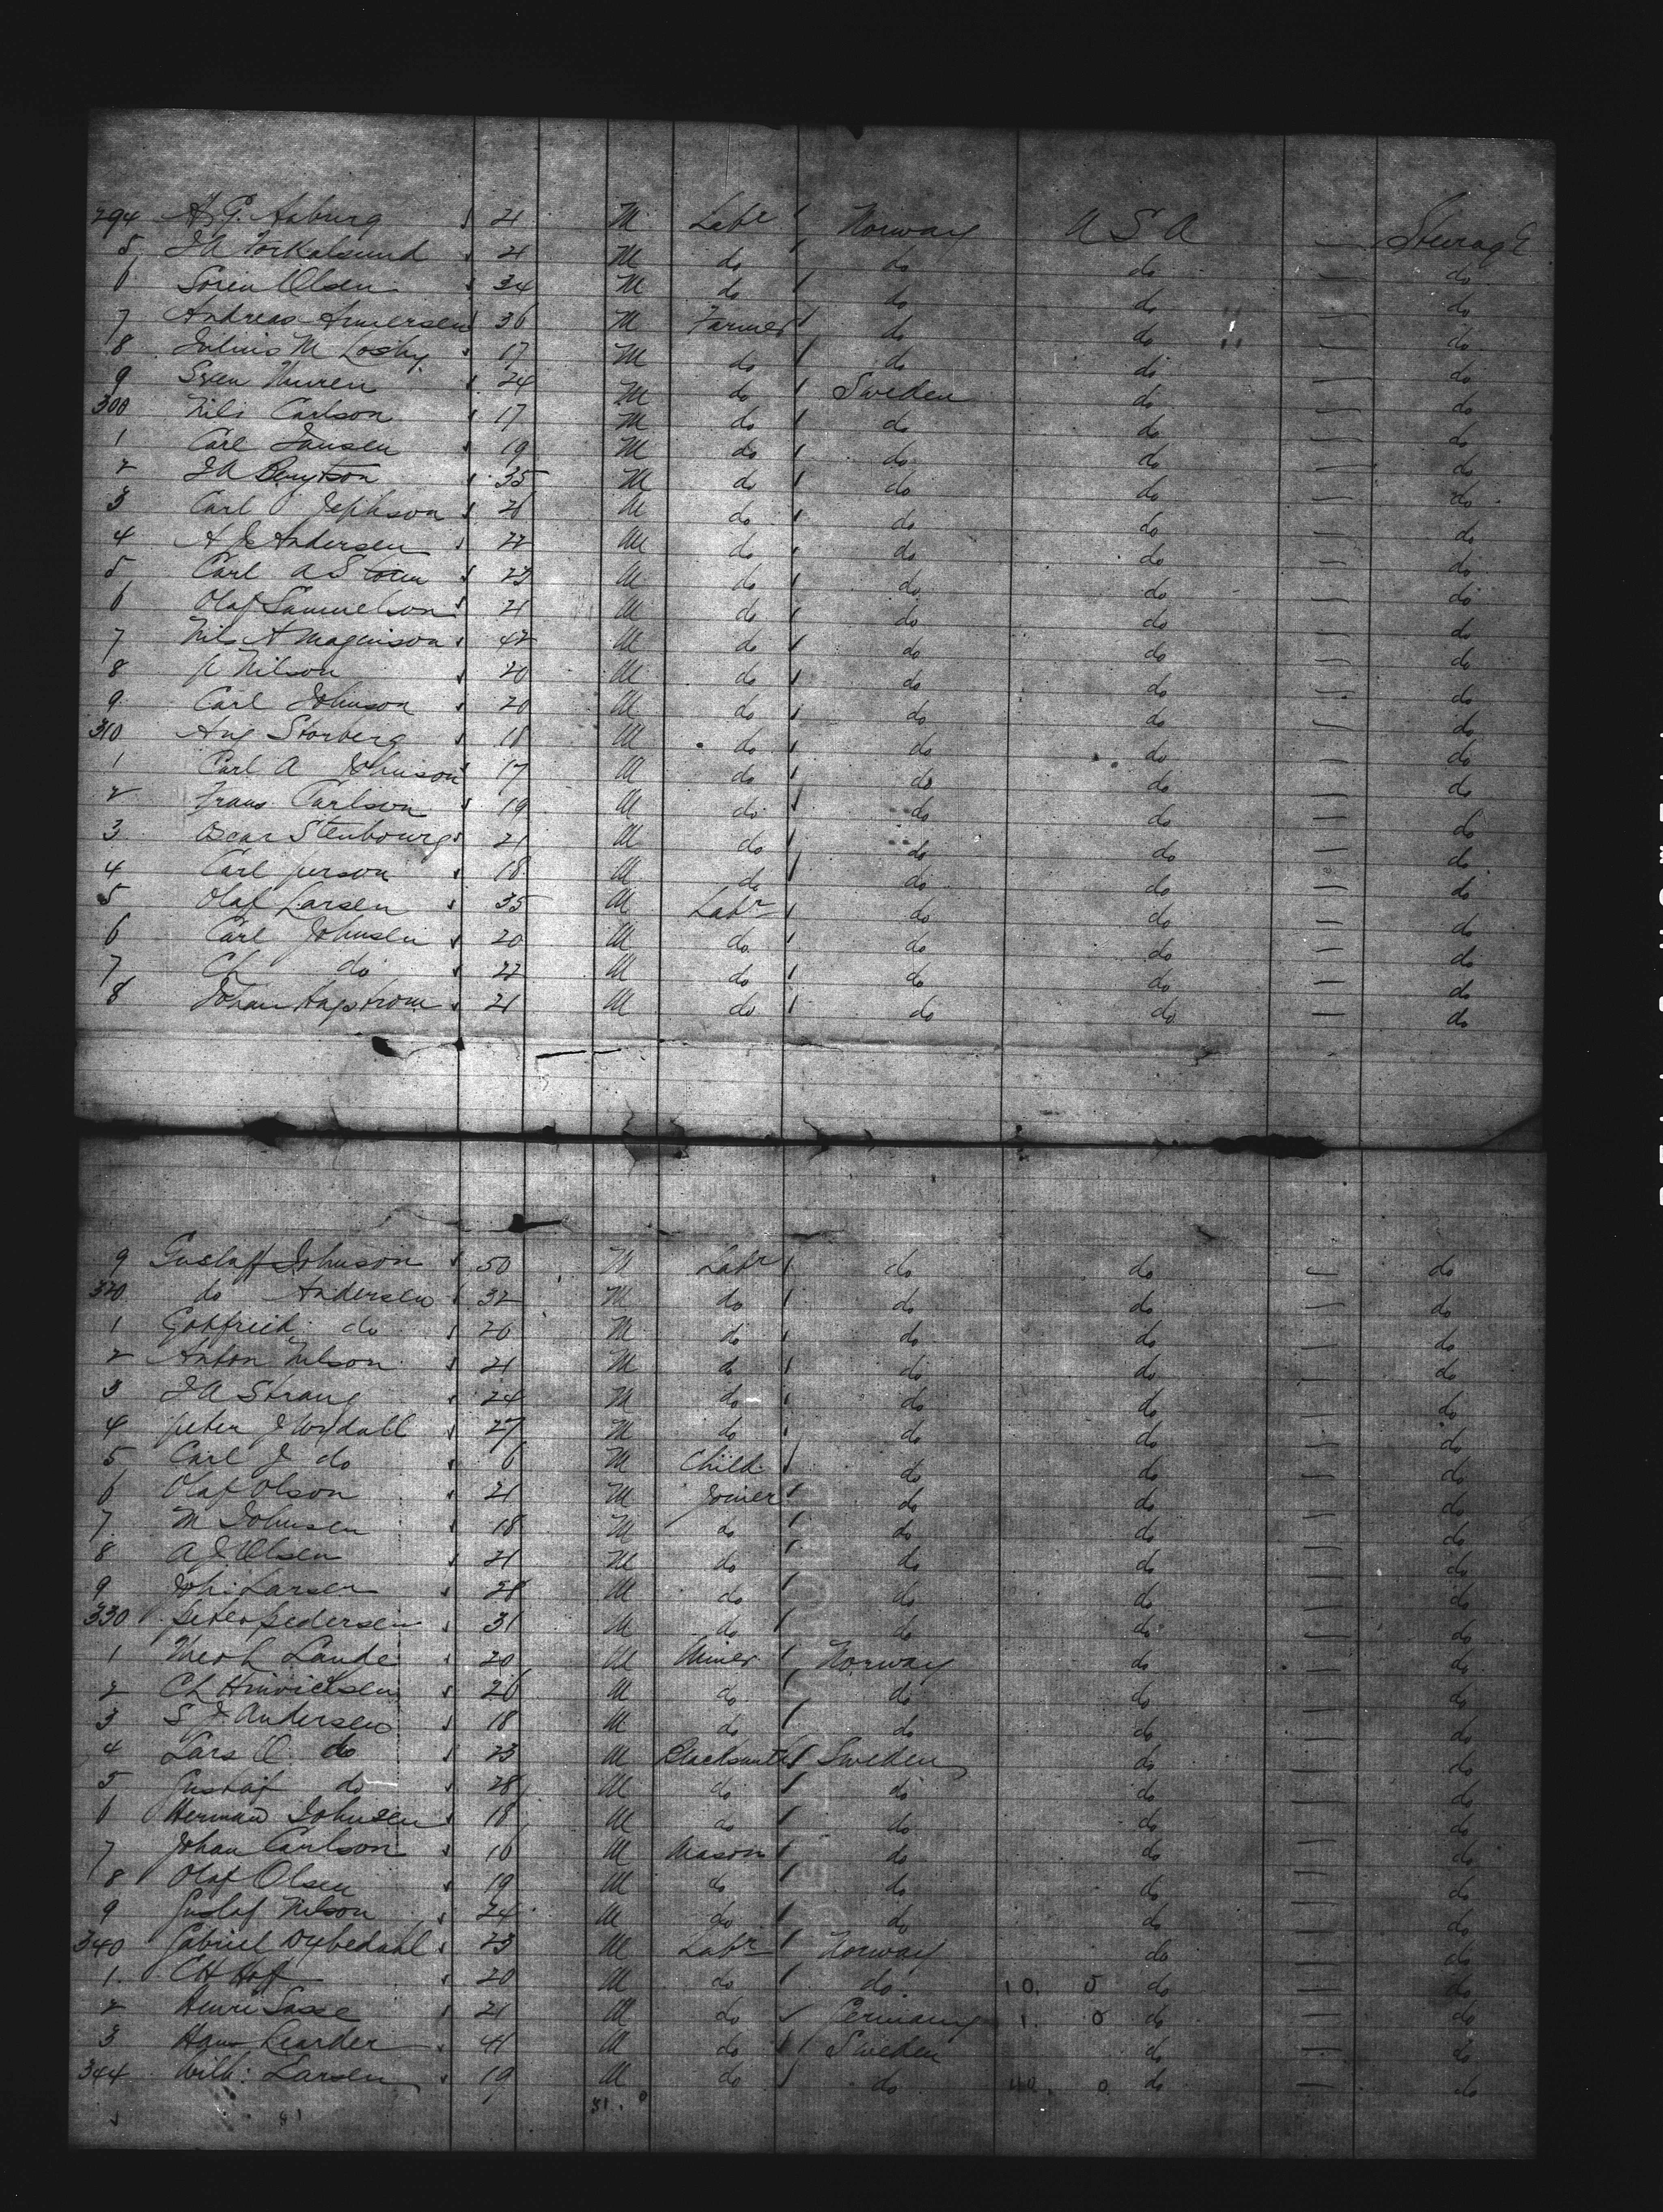 294 A. G. Aaburg 21 M Labr Norway U S A — Steerage
5 J A Torkalsund 21 M do do do — do
6 Soren Olsen 34 M do do do — do
7 Andreas Amersen 36 M Farmer do do — do
8 Julius M Losby 17 M do do do — do
9 Sven 24 M do Sweden do — do
300 Nils Carlson 17 M do do do — do
1 Carl Jansen 19 M do do do — do
2 J A Bengtson 35 M do do do — do
3 Carl Jephson 21 M do do do — do
4 A J Andersen 22 M do do do — do
5 Carl A Storm 23 M do do do — do
6 Olaf Samuelson 21 M do do do — do
7 Nils A Magnison 42 M do do do — do
8 P Nilson 20 M do do do — do
9 Carl Johnson 20 M do do do — do
310 Aug Storberg 18 M do do do — do
1 Carl A Johnson 17 M do do do — do
2 Frans Carlson 19 M do do do — do
3 Oscar Stenbourg 21 M do do do — do
4 Carl Person 18 M do do do — do
5 Olaf Larsen 35 M Labr do do — do
6 Carl Johnsen 20 M do do do — do
7 Ch do 22 M do do do — do
8 Johan Hagstrom 21 M do do do — do
9 Gustaff Johnson 50 M Labr do do — do
320 do Andersen 32 M do do do — do
1 Gottfried do 26 M do do do — do
2 Anton Nelson 21 M do do do — do
3 J A Strang 24 M do do do — do
4 Peter J 27 M do do do — do
5 Carl J do 6 M Child do do — do
6 Olaf Olson 21 M Joiner do do — do
7 M Johnsen 18 M do do do — do
8 A J Olsen 21 M do do do — do
9 Joh: Larsen 28 M do do do — do
330 Peter Pedersen 31 M do do do — do
1 Lande 20 M Miner Norway do — do
2 Ch Hinricksen 26 M do do do — do
3 S J Andersen 18 M do do do — do
4 Lars O do 23 M Blacksmith Sweden do — do
5 Gustaf do 28 M do do do — do
6 Herman Johnsen 18 M do do do — do
7 Johan Carlson 16 M Mason do do — do
8 Olaf Olsen 19 M do do do — do
9 Gustaf Nelson 24 M do do do — do
340 Gabriel Dybedahl 23 M Labr Norway do — do
1 C H Hoff 20 M do do 10. 0 do — do
2 Henri Sasse 21 M do Germany 1. 0 do — do
3 Learder 41 M do Sweden do — do
344 Wilh: Larsen 19 M do do 40. 0 do — do
81 81. 0